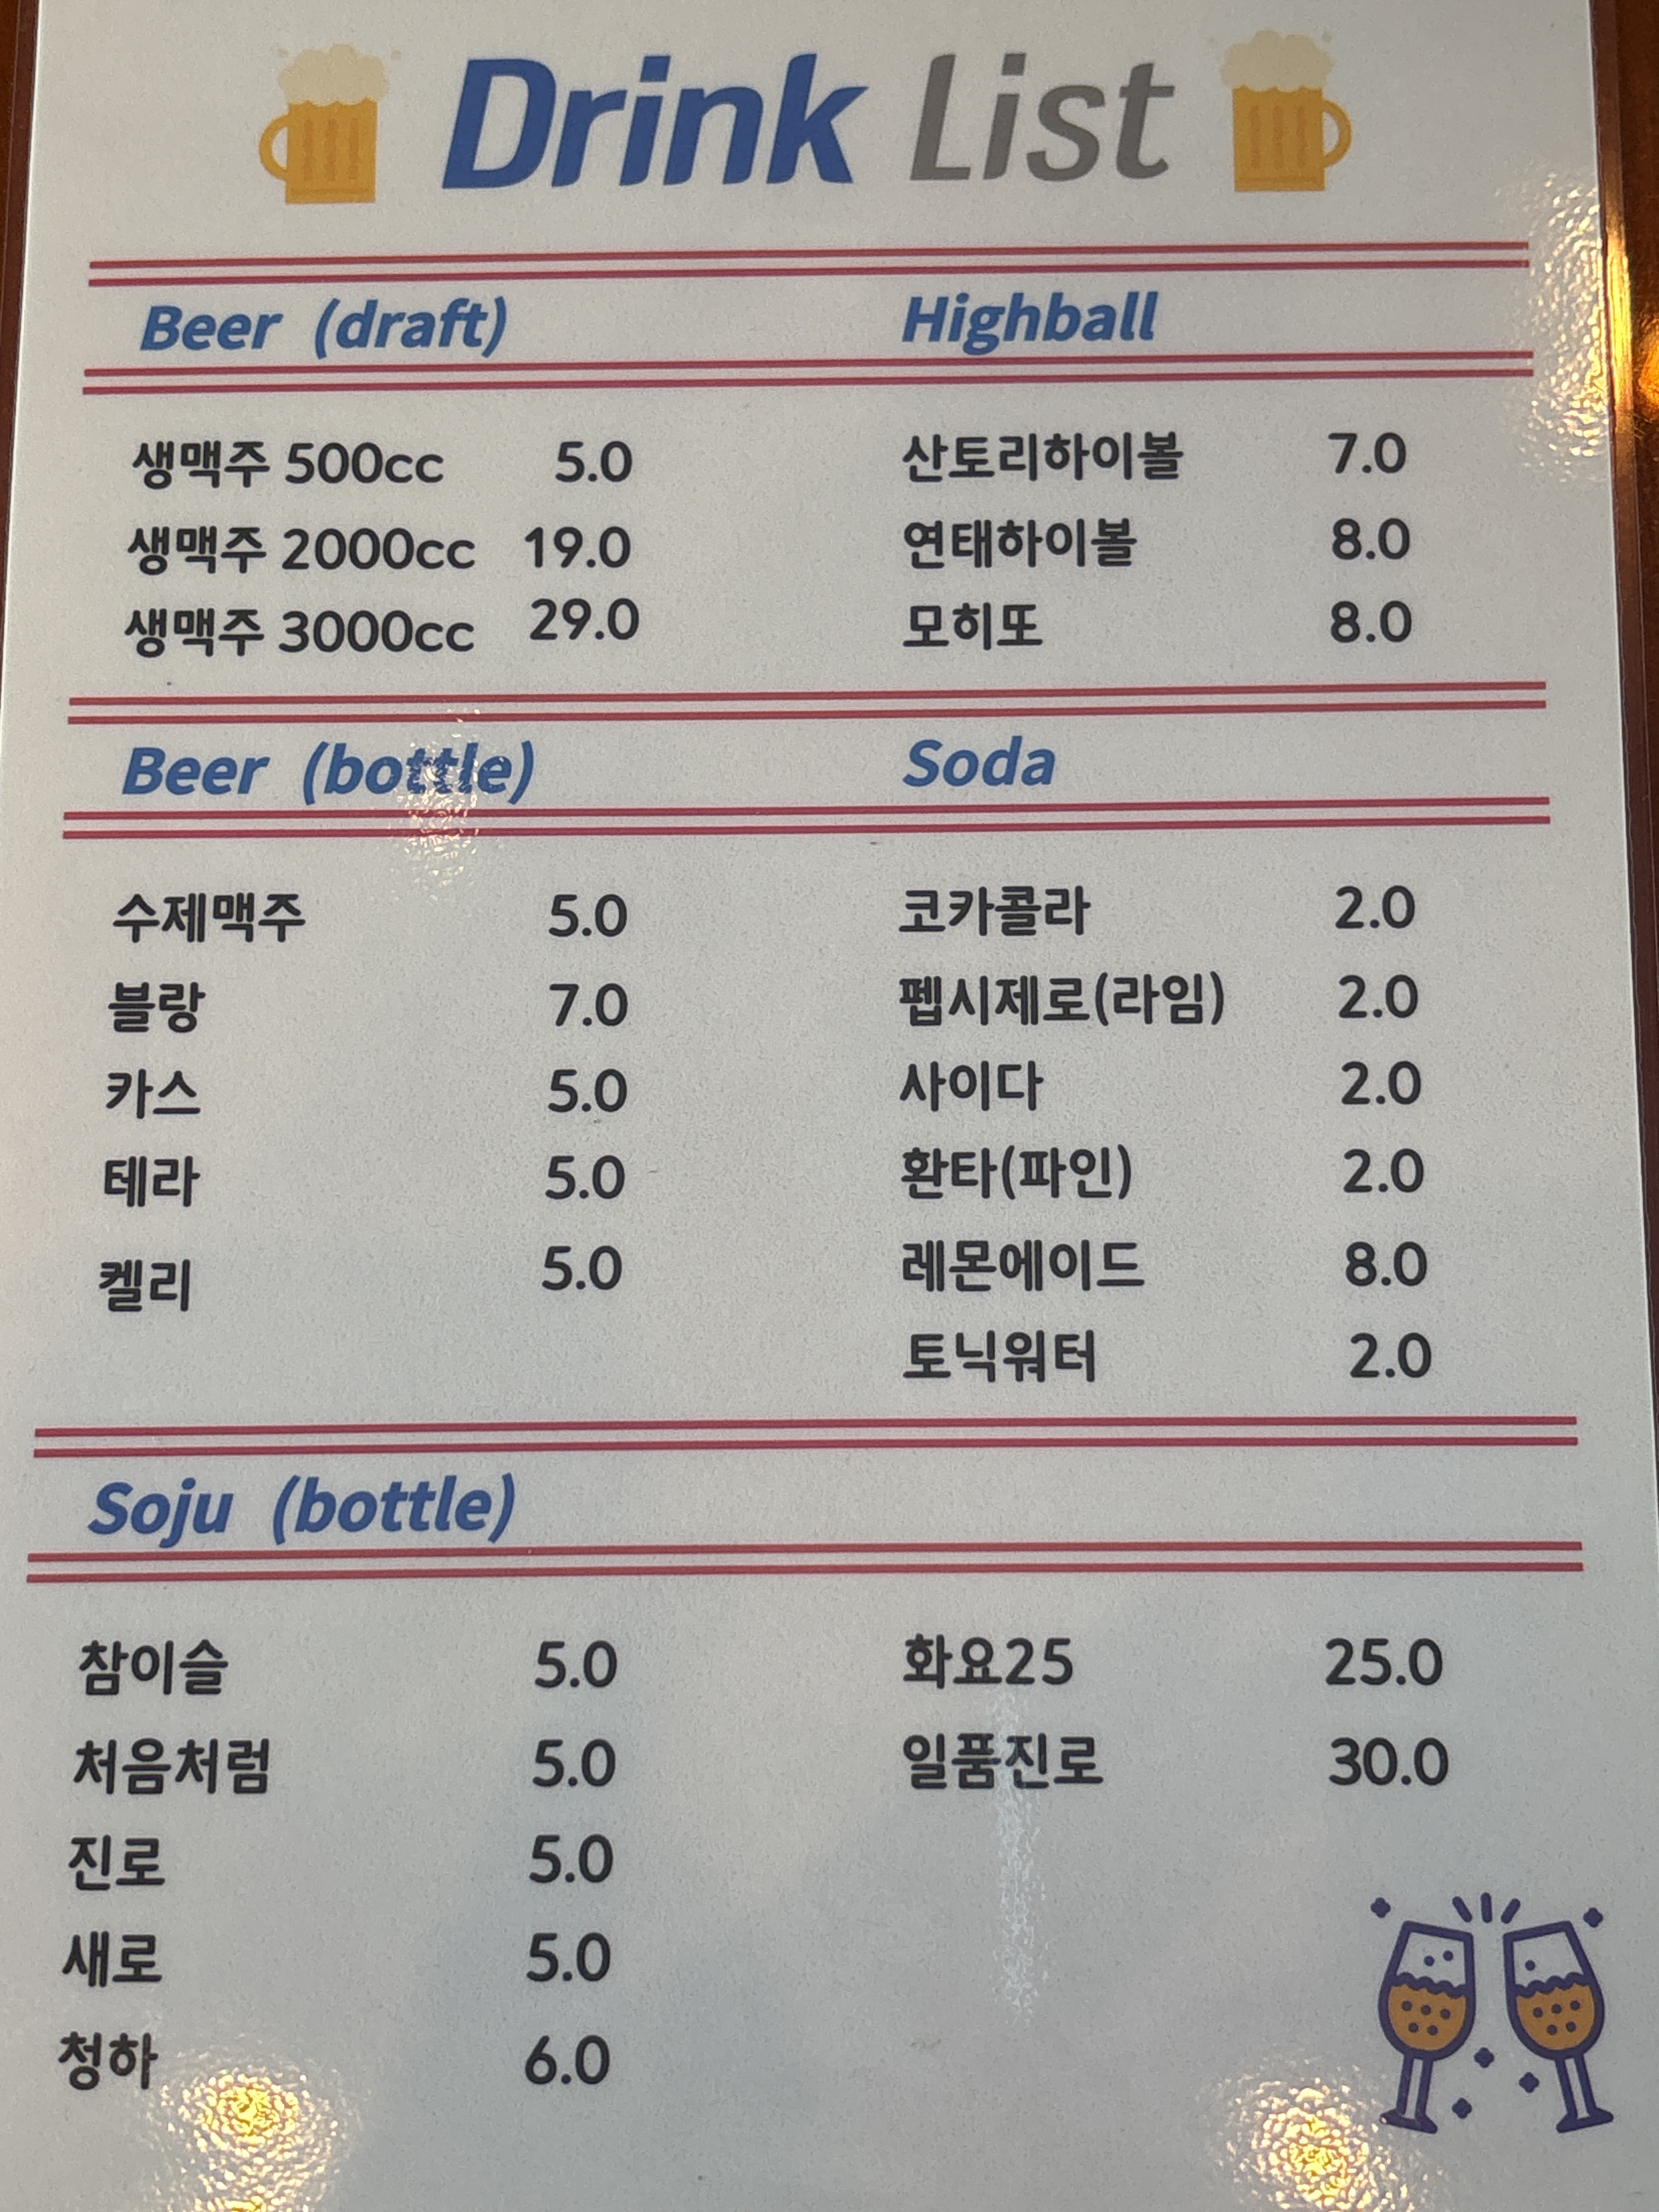 Drink List
Beer (draft)
생맥주 500cc 5.0
생맥주 2000cc 19.0
생맥주 3000cc 29.0
Highball
산토리하이볼 7.0
연태하이볼 8.0
모히또 8.0
Beer (bottle)
수제맥주 5.0
블랑 7.0
카스 5.0
테라 5.0
켈리 5.0
Soda
코카콜라 2.0
펩시제로(라임) 2.0
사이다 2.0
환타(파인) 2.0
레몬에이드 8.0
토닉워터 2.0
Soju (bottle)
참이슬 5.0
처음처럼 5.0
진로 5.0
새로 5.0
청하 6.0
화요25 25.0
일품진로 30.0